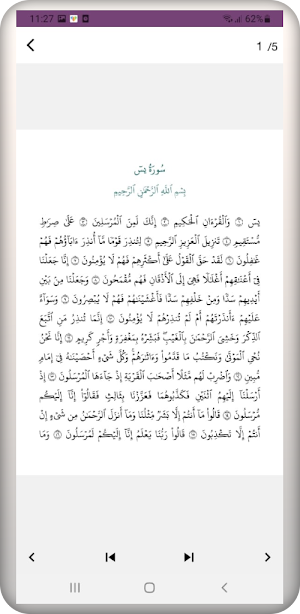 11:27 62%
1 /5
سُورَةُ يسٓ
بِسْمِ اللَّهِ الرَّحْمَٰنِ الرَّحِيمِ
يسٓ ۝ وَالْقُرْءَانِ الْحَكِيمِ ۝ إِنَّكَ لَمِنَ الْمُرْسَلِينَ ۝ عَلَىٰ صِرَٰطٍ
مُّسْتَقِيمٍ ۝ تَنزِيلَ الْعَزِيزِ الرَّحِيمِ ۝ لِتُنذِرَ قَوْمًا مَّآ أُنذِرَ ءَابَآؤُهُمْ فَهُمْ
غَٰفِلُونَ ۝ لَقَدْ حَقَّ الْقَوْلُ عَلَىٰٓ أَكْثَرِهِمْ فَهُمْ لَا يُؤْمِنُونَ ۝ إِنَّا جَعَلْنَا
فِىٓ أَعْنَٰقِهِمْ أَغْلَٰلًا فَهِىَ إِلَى الْأَذْقَانِ فَهُم مُّقْمَحُونَ ۝ وَجَعَلْنَا مِنۢ بَيْنِ
أَيْدِيهِمْ سَدًّا وَمِنْ خَلْفِهِمْ سَدًّا فَأَغْشَيْنَٰهُمْ فَهُمْ لَا يُبْصِرُونَ ۝ وَسَوَآءٌ
عَلَيْهِمْ ءَأَنذَرْتَهُمْ أَمْ لَمْ تُنذِرْهُمْ لَا يُؤْمِنُونَ ۝ إِنَّمَا تُنذِرُ مَنِ اتَّبَعَ
الذِّكْرَ وَخَشِىَ الرَّحْمَٰنَ بِالْغَيْبِ فَبَشِّرْهُ بِمَغْفِرَةٍ وَأَجْرٍ كَرِيمٍ ۝ إِنَّا نَحْنُ
نُحْىِ الْمَوْتَىٰ وَنَكْتُبُ مَا قَدَّمُوا۟ وَءَاثَٰرَهُمْ وَكُلَّ شَىْءٍ أَحْصَيْنَٰهُ فِىٓ إِمَامٍ
مُّبِينٍ ۝ وَاضْرِبْ لَهُم مَّثَلًا أَصْحَٰبَ الْقَرْيَةِ إِذْ جَآءَهَا الْمُرْسَلُونَ ۝ إِذْ
أَرْسَلْنَآ إِلَيْهِمُ اثْنَيْنِ فَكَذَّبُوهُمَا فَعَزَّزْنَا بِثَالِثٍ فَقَالُوٓا۟ إِنَّآ إِلَيْكُم
مُّرْسَلُونَ ۝ قَالُوا۟ مَآ أَنتُمْ إِلَّا بَشَرٌ مِّثْلُنَا وَمَآ أَنزَلَ الرَّحْمَٰنُ مِن شَىْءٍ إِنْ
أَنتُمْ إِلَّا تَكْذِبُونَ ۝ قَالُوا۟ رَبُّنَا يَعْلَمُ إِنَّآ إِلَيْكُمْ لَمُرْسَلُونَ ۝ وَمَا